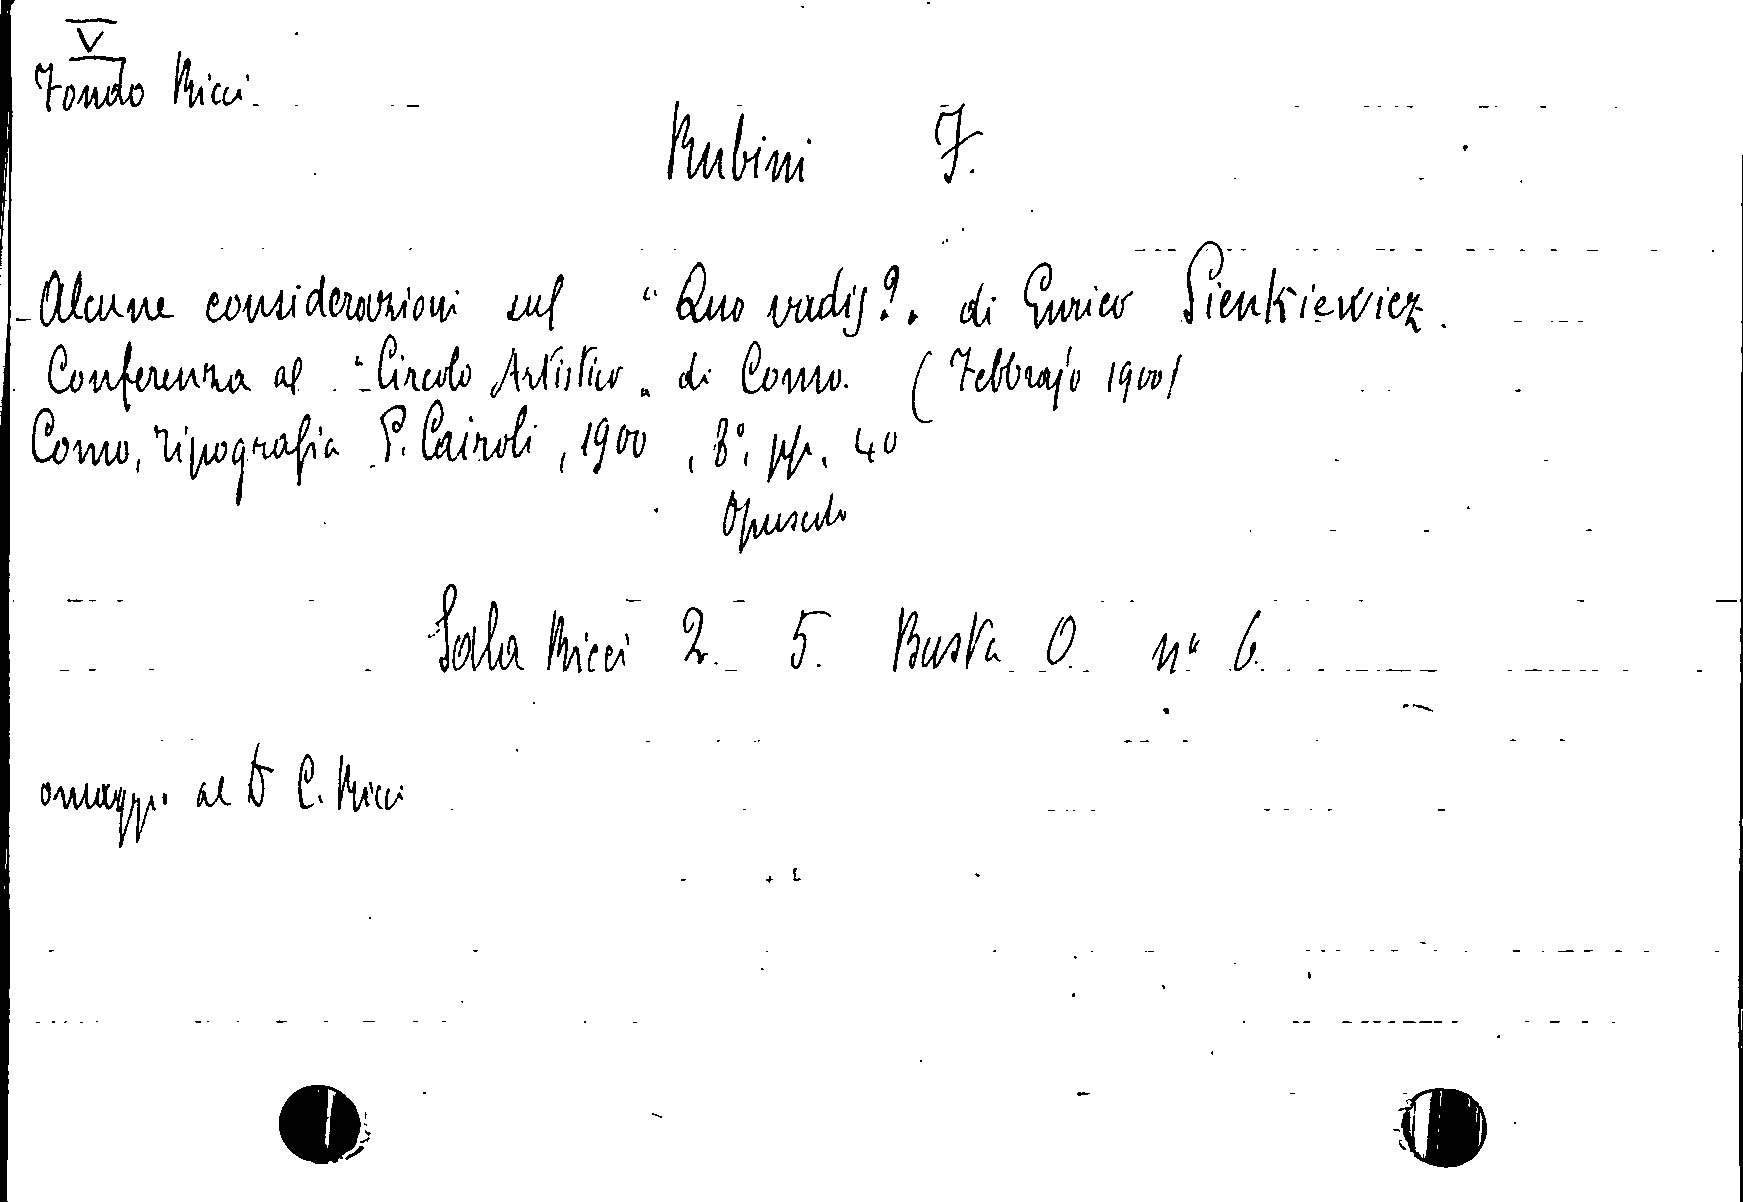 V
Fondo Ricci.
Rubini F.
Alcune considerazioni sul "Quo vadis?" di Enrico Sienkiewicz.
Conferenza al "Circolo Artistico" di Como. (Febbrajo 1900)
Como, Tipografia P. Cairoli, 1900, 8°, pp. 40
Opuscolo
Sala Ricci 2. 5. Busta O. n° 6.
omaggio al D C. Ricci